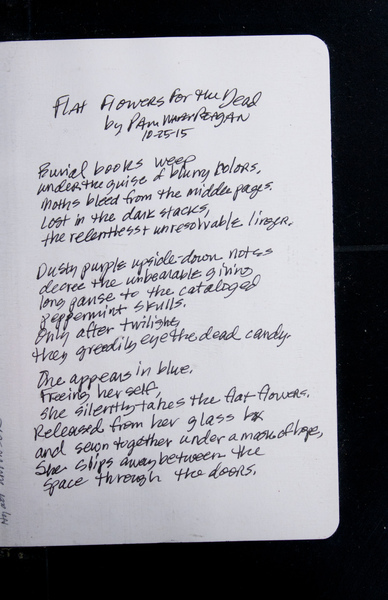 Flat Flowers For the Dead
by Pam Reagan
10-25-15
Burial books weep
under the guise of blurry colors,
moths bleed from the middle pages.
Lost in the dark stacks,
the relentless + unresolvable linger.
Dusty purple upside-down notes
decree the unbearable giving
long pause to the cataloged
peppermint skulls.
Only after twilight,
they greedily eye the dead candy.
One appears in blue.
Freeing herself,
she silently takes the flat flowers.
Released from her glass box
and sewn together under a mask of hope,
She slips away between the
space through the doors.